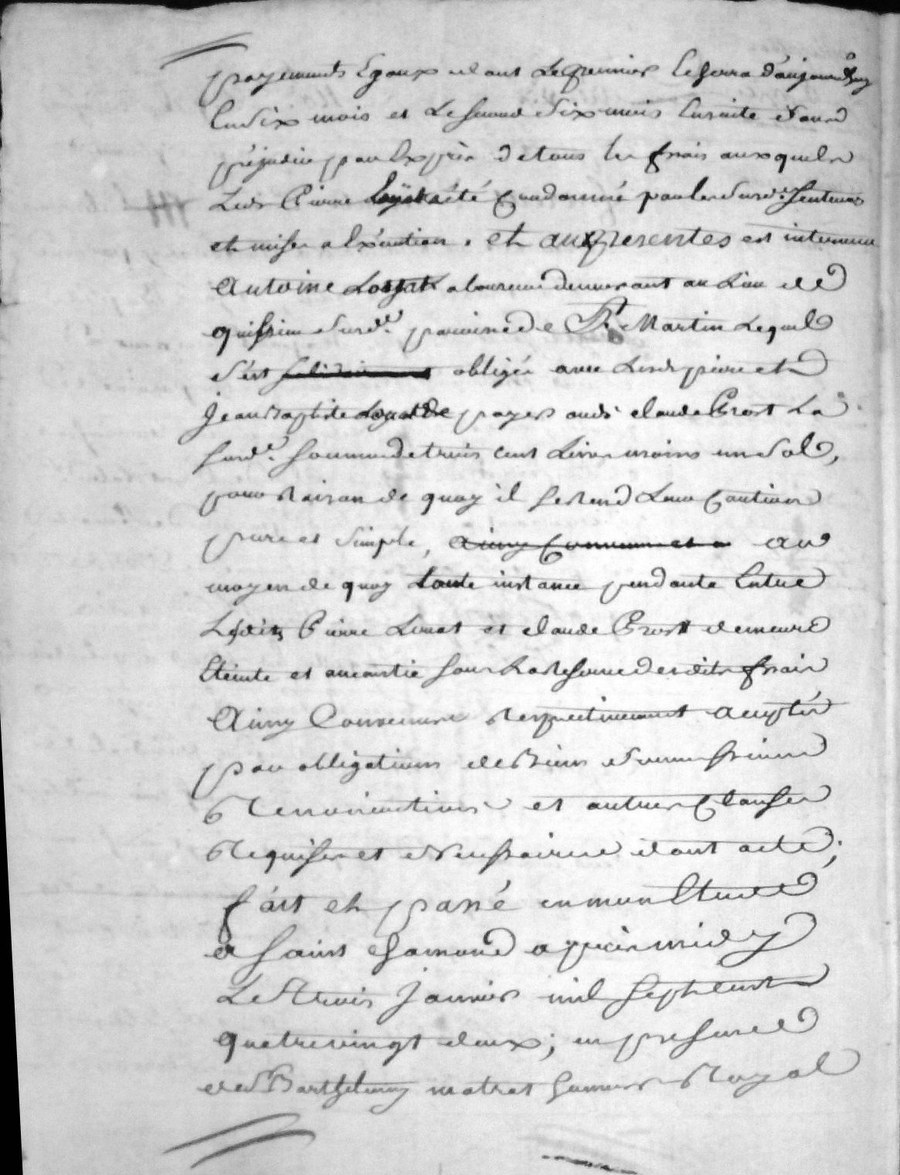 payements Egaux dont le premier se fera d'aujourd'huy
En six mois et le second six mois Ensuite et sans
préjudice par Exprès de tous les frais auxquels
Ledt Pierre a été Condamné par les susd. Sentences
et mises a Exécution. et aux presentes est intervenu
Antoine Louat laboureur demeurant au Lieu de
susde. paroisse de St. Martin Lequel
s'est solidairement obligée avec Lesds pierre et
Jean Baptiste Louat de payer audt claude Prost La
susde. somme de trois cent Livres moins un sol,
pour raison de quoy il se rend Leur Caution
pure et simple, ainsy Convenu et a au
moyen de quoy toute instance pendante Entre
Lesdits Pierre Louat et claude Prost demeure
Eteinte et aneantie sous La Reserve desdits frais
Ainsy Convenu Respectivement accepté
par obligations de Biens soumissions
Renonciations et autres Clauses
Requises et nécessaires dont acte;
fait et passé en mon Etude
a saint chamond apres midy
Le trois Janvier mil sept cent
quatrevingt deux; en presence
de Sr Barthelemy matret Royal